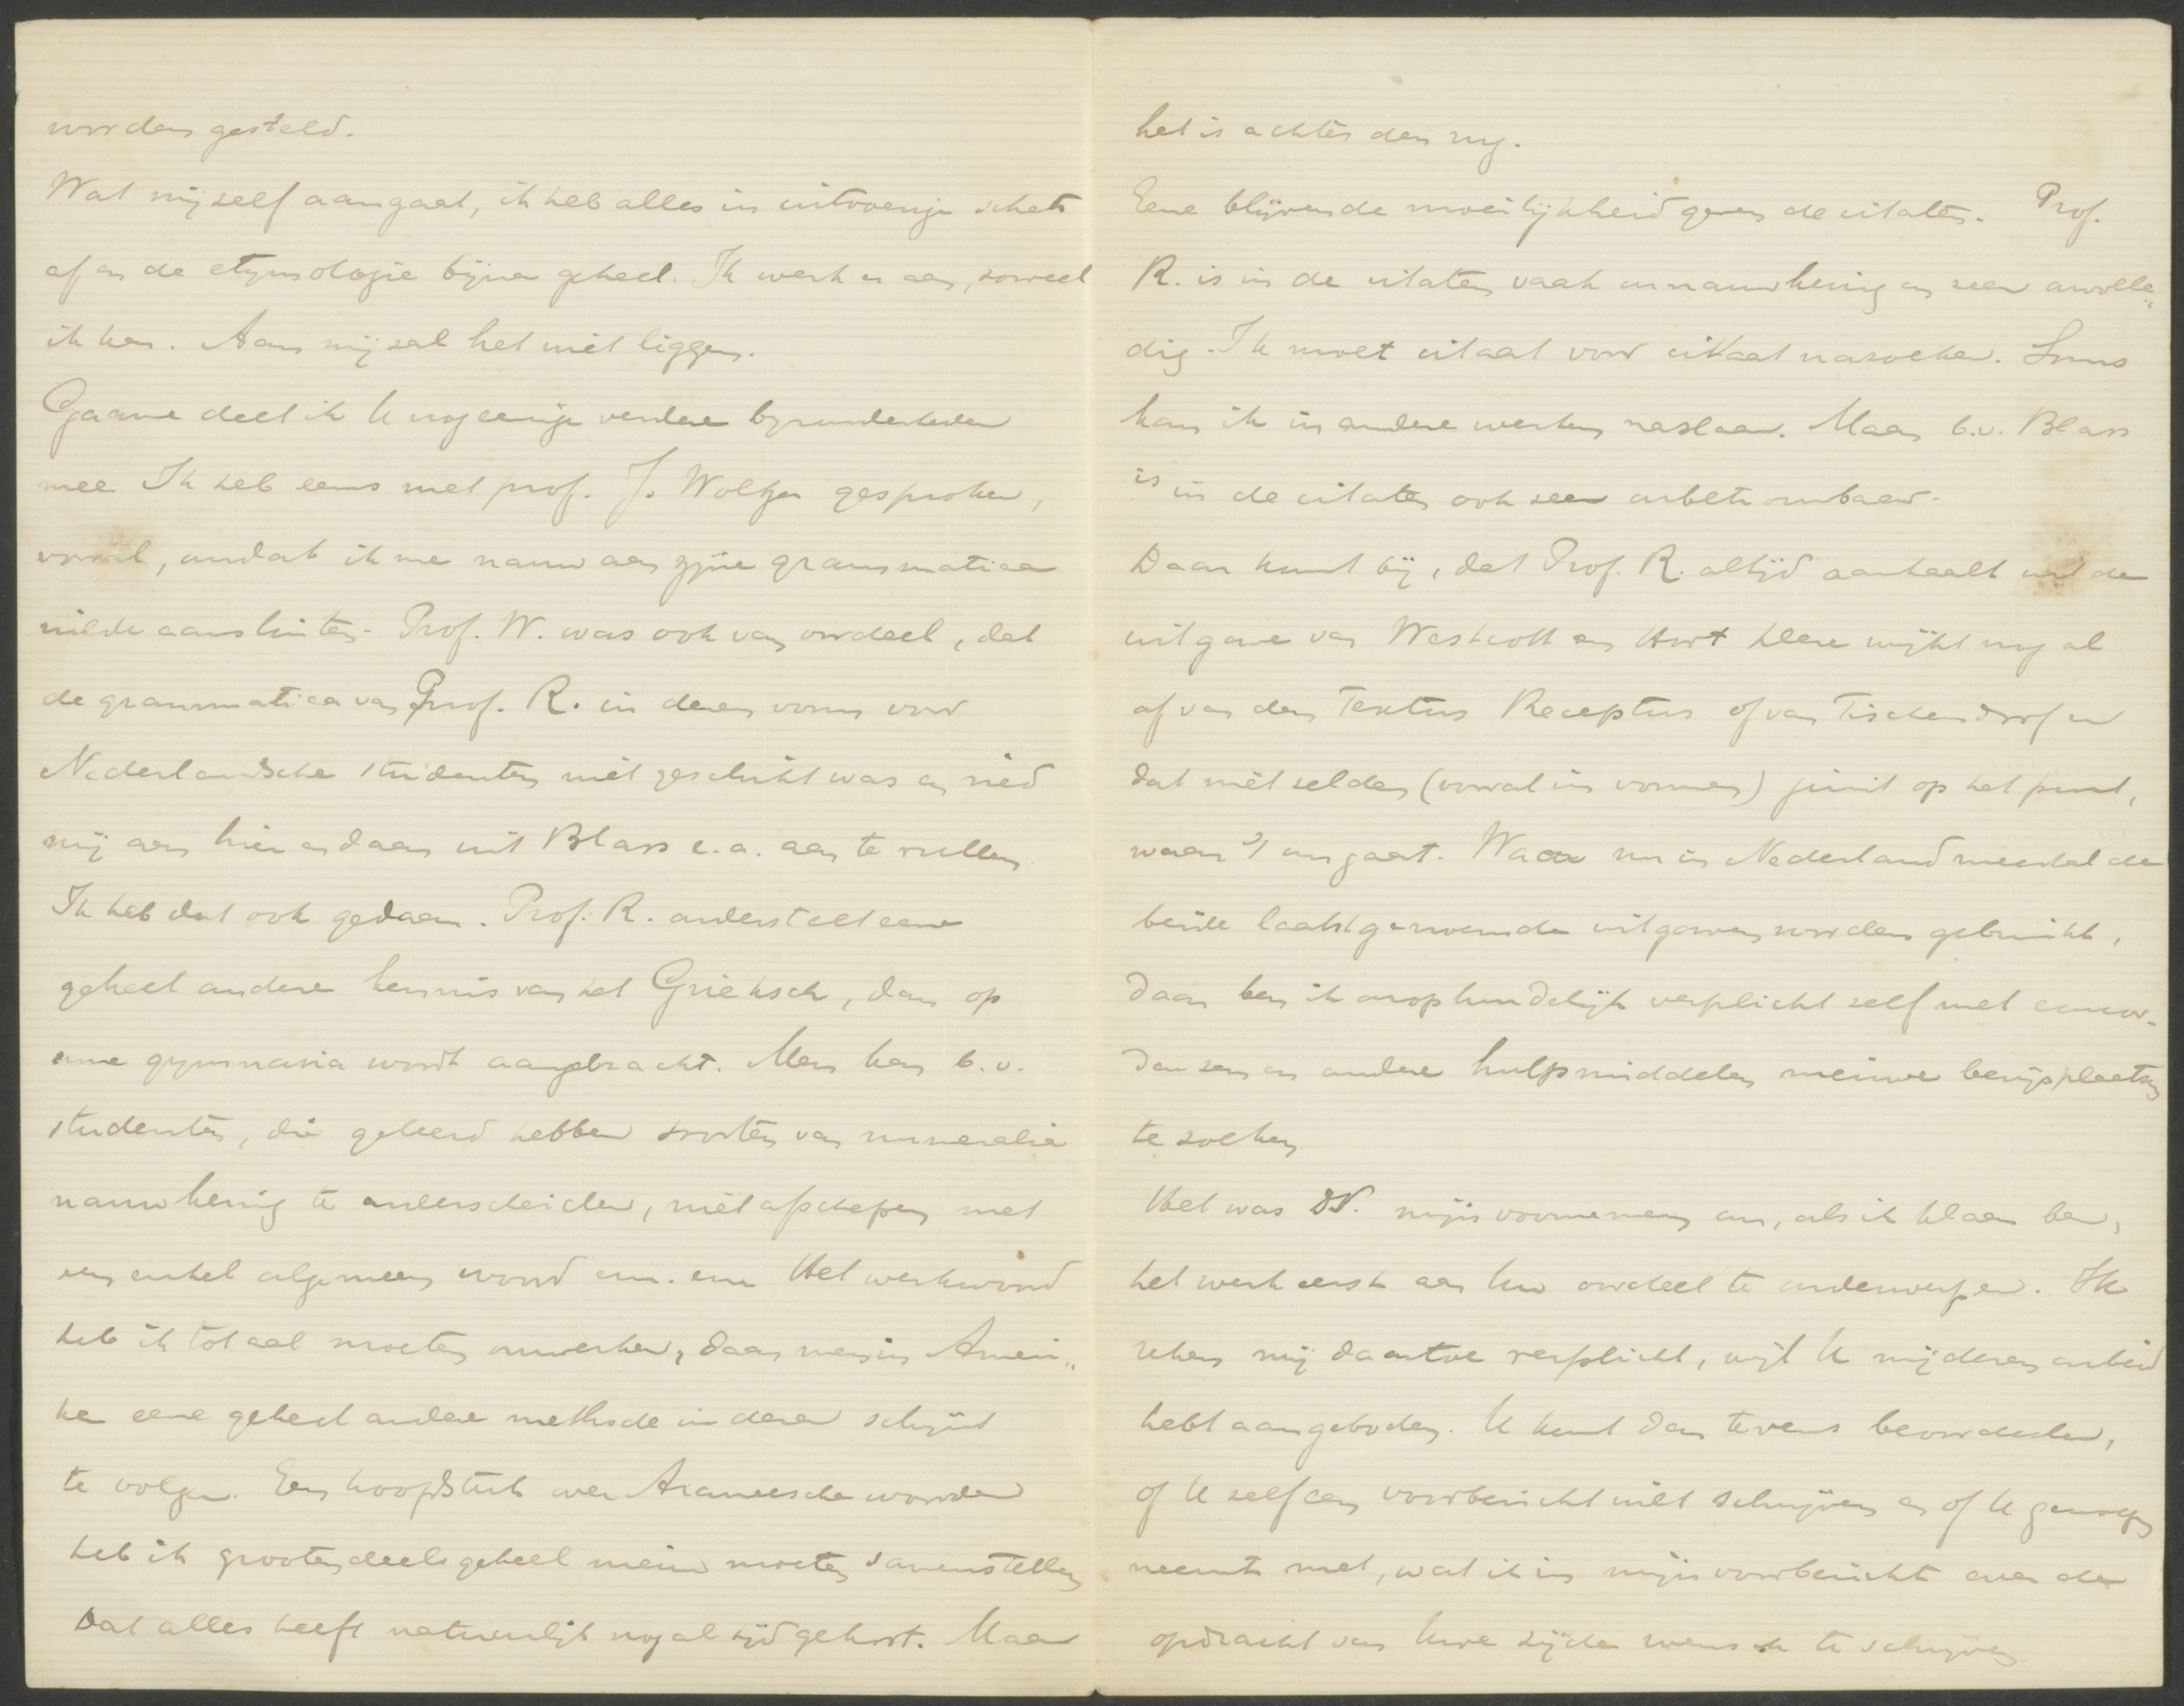 worden gesteld.
Wat mijzelf aangaat, ik heb alles in uitvoerige schets
af en de etymologie bijna geheel. Ik werk er aan, zooveel
ik kan. Aan mij zal het niet liggen.
Gaarne deel ik U nog eenige verdere bijzonderheden
mee. Ik heb eens met prof. J. Woltjer gesproken,
vooral, omdat ik me nauw aan zijne grammatica
wilde aansluiten. Prof. W. was ook van oordeel, dat
de grammatica van Prof. R. in dezen vorm voor
Nederlandsche studenten niet geschikt was en ried
mij aan hier en daar uit Blass e.a. aan te vullen.
Ik heb dat ook gedaan. Prof. R. onderstelt eene
geheel andere kennis van het Grieksch, dan op
onze gymnasia wordt aangebracht. Men kan b.v.
studenten, die geleerd hebben soorten van numeralia
nauwkeurig te onderscheiden, niet afschepen met
een enkel algemeen woord enz. enz. Het werkwoord
heb ik totaal moeten omwerken, daar men in Ameri„
ka eene geheel andere methode in dezen schijnt
te volgen. Een hoofdstuk over Arameesche woorden
heb ik grootendeels geheel nieuw moeten samenstellen
Dat alles heeft natuurlijk nog al tijd gekost. Maar
het is achter den rug.
Eene blijvende moeilijkheid geven de citaten. Prof.
R. is in de citaten vaak onnauwkeurig en zeer onvolle„
dig. Ik moet citaat voor citaat nazoeken. Soms
kan ik in andere werken naslaan. Maar b.v. Blass
is in de citaten ook zeer onbetrouwbaar.
Daar komt bij, dat Prof. R. altijd aanhaalt uit de
uitgave van Westcott en Hort. Deze wijkt nog al
af van den Textus Receptus of van Tischendorf en
dat niet zelden (vooral in vormen) juist op het punt,
waar 't om gaat. Waar nu in Nederland meestal de
beide laatstgenoemde uitgaven worden gebruikt,
daar ben ik onophoudelijk verplicht zelf met concor-
danzen en andere hulpmiddelen nieuwe bewijsplaatsen
te zoeken
Het was DV. mijn voornemen om, als ik klaar ben,
het werk eerst aan Uw oordeel te onderwerpen. Ik
reken mij daartoe verplicht, wijl U mij dezen arbeid
hebt aangeboden. U kunt dan tevens beoordeelen,
of U zelf een voorbericht wilt schrijven en of U genoegen
neemt met, wat ik in mijn voorbericht over de
opdracht van Uwe zijde wensch te schrijven.